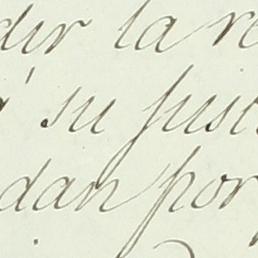 dir la re
á su just
dan por